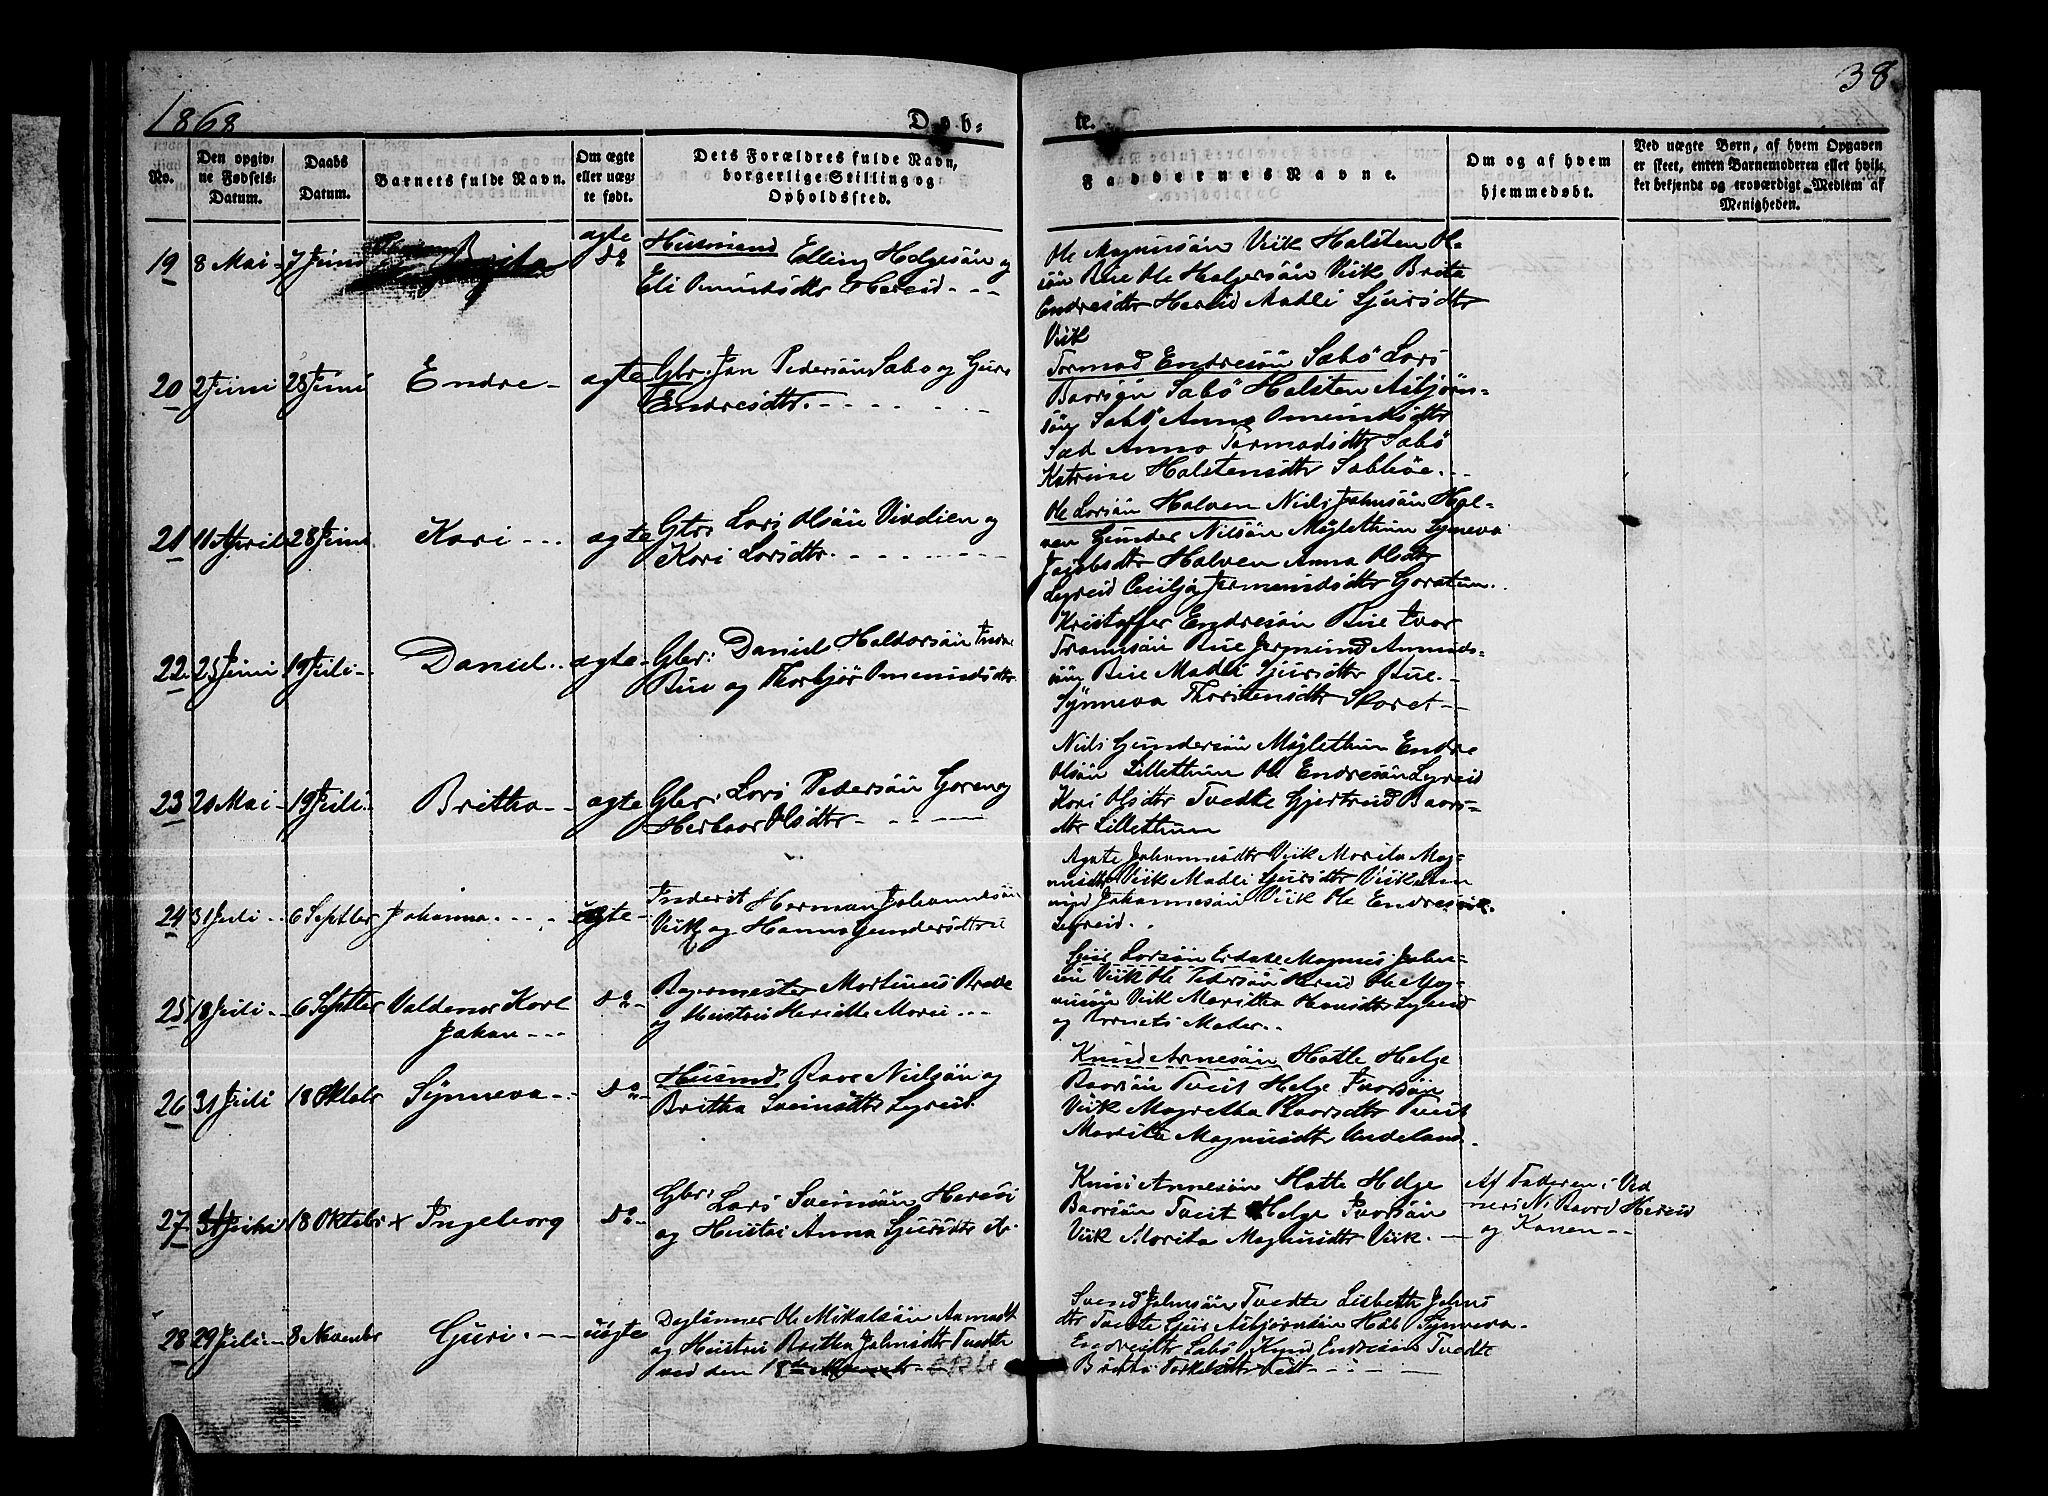 1868
38
Døb-
te.
No.
Den opgiv-
ne Fødsels-
Datum.
Daabs
Datum.
Barnets fulde Navn.
Om ægte
eller uæg-
te født.
Dets Forældres fulde Navn,
borgerlige Stilling og
Opholdssted.
Faddernes Navne.
Om og af hvem
hjemmedøbt.
Ved uægte Børn, af hvem Opgaven
er skeet, enten Barnemoderen eller hvil-
ket bekjendt og troværdigt Medlem af
Menigheden.
19 8 Mai - 7 Juni
ægte
do
Husmand Elling Helgesön og
Eli Omundsdtr Hereid - - -
Ole Magnusön Viik Halsten Ol-
sön Bue Ole Holgersön Viik Brita
Endresdtr Hereid Madli Sjursdtr
Viik
20 2 Juni 28 Juni Endre - ægte
Gbr: Jon Pedersön Sæbo og Guro
Endresdtr. - - - -
Tormod Endresön Sæbö Lars
Baarsön Sæbö Halsten Asbjörn-
sön Sæbö Anna Omundsdtr
Sæd Anna Tormodsdtr Sæbö
Katrine Halstensdtr Sæbböe. - -
21 11 April 28 Juni Kari - - - ægte
Gbr: Lars Olsön Vivelien og
Kari Larsdtr. - - - -
Ole Larsön Halven Niels Johnsön Hal-
ven Gunder Nilsön Myklethun Synneva
Jacobsdtr Halven Anna Olsdtr
Legreid Cecilja Jermundsdtr Garatun.
22 25 Juni 19 Juli - Daniel - - ægte -
Gbr: Daniel Haldorsön
Bue og Thorbjör Omundsdtr
Kristoffer Endresön Bue Ivar
Bue Jermund Amunds-
sön Bue Madli Sjursdtr Bue. -
Synneva Thorstensdtr Skaret - -
23 20 Mai - 19 Juli. Britha - - ægte
Gbr: Lars Pedersön Garen og
Herbaar Olsdtr - - - -
Niels Gundersön Myklethun Endre
Olsön Lillethun Ole Endresön Legreid
Kari Olsdtr Tvedte Gjertrud Baars-
dtr Lillethun
24 31 Juli - - 6 Septbr Johanna. - - - ægte -
Inderst Herman Johannesön
Viik og Hanna Gundersdtr
Agate Johannesdtr Viik Marita Mag-
nusdtr Viik Madli Sjursdtr Viik
Johannesön Viik Ole Endresön
Legreid. -
25 18 Juli - - 6 Septbr Valdemar Karl
Johan - - - do -
Bagermester Martinus Brede
og Hustru Henriette Marie - - -
Sjur Larsön Erdale Magnus John-
sön Viik Ole Pedersön Hereid Ole Mag-
nusön Viik Maritha Hansdtr Legreid
og Barnets Moder. -
26 31 Juli 18 Oktobr Synneva - - do -
Husmd Baar Nielsön og
Britha Sveinsdtr Legreid.
Knud Arnesön Hatle Helge
Baarsön Tveit Helge Ivarsön
Viik Magretha Baarsdtr Tveit
Marita Magnusdtr Undeland.
27 18 Oktobr x Ingeborg do -
Gbr: Lars Sveinsön Hereid
og Hustru Anna Sjursdtr
Knud Arnesön Hatle Helge
Baarsön Tveit Helge Ivarsön
Viik Marita Magnusdtr Viik. -
Af Faderen i Vid
neri N. Baard Hereid
og Konen - -
28 29 Juli - 8 Novembr Guri - - - uægte
Daglönner Ole Mikalsön Aamodt
og Hustru Britha Johnsdtr Tvedte
ved den 18de
Svend Johnsön Tvedte Lisbeth Johns
dtr Tvedte Sjur Asbjörnsön Hæb Synneva
Endresdtr Sæbö Knud Endresön Tvedte
Britha Torkelsdtr Tveit - - -